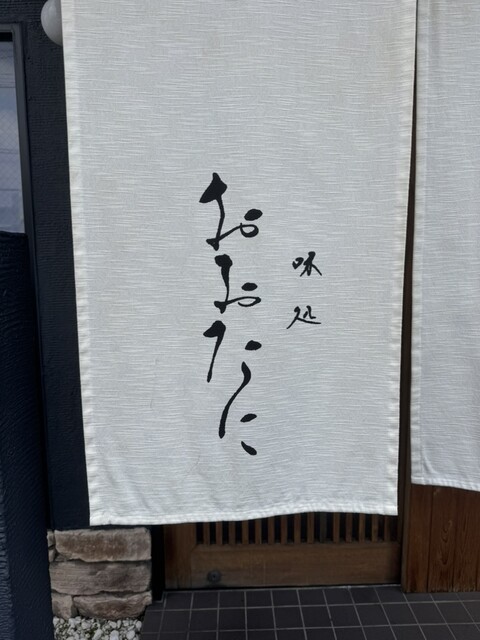 味処
おおたに